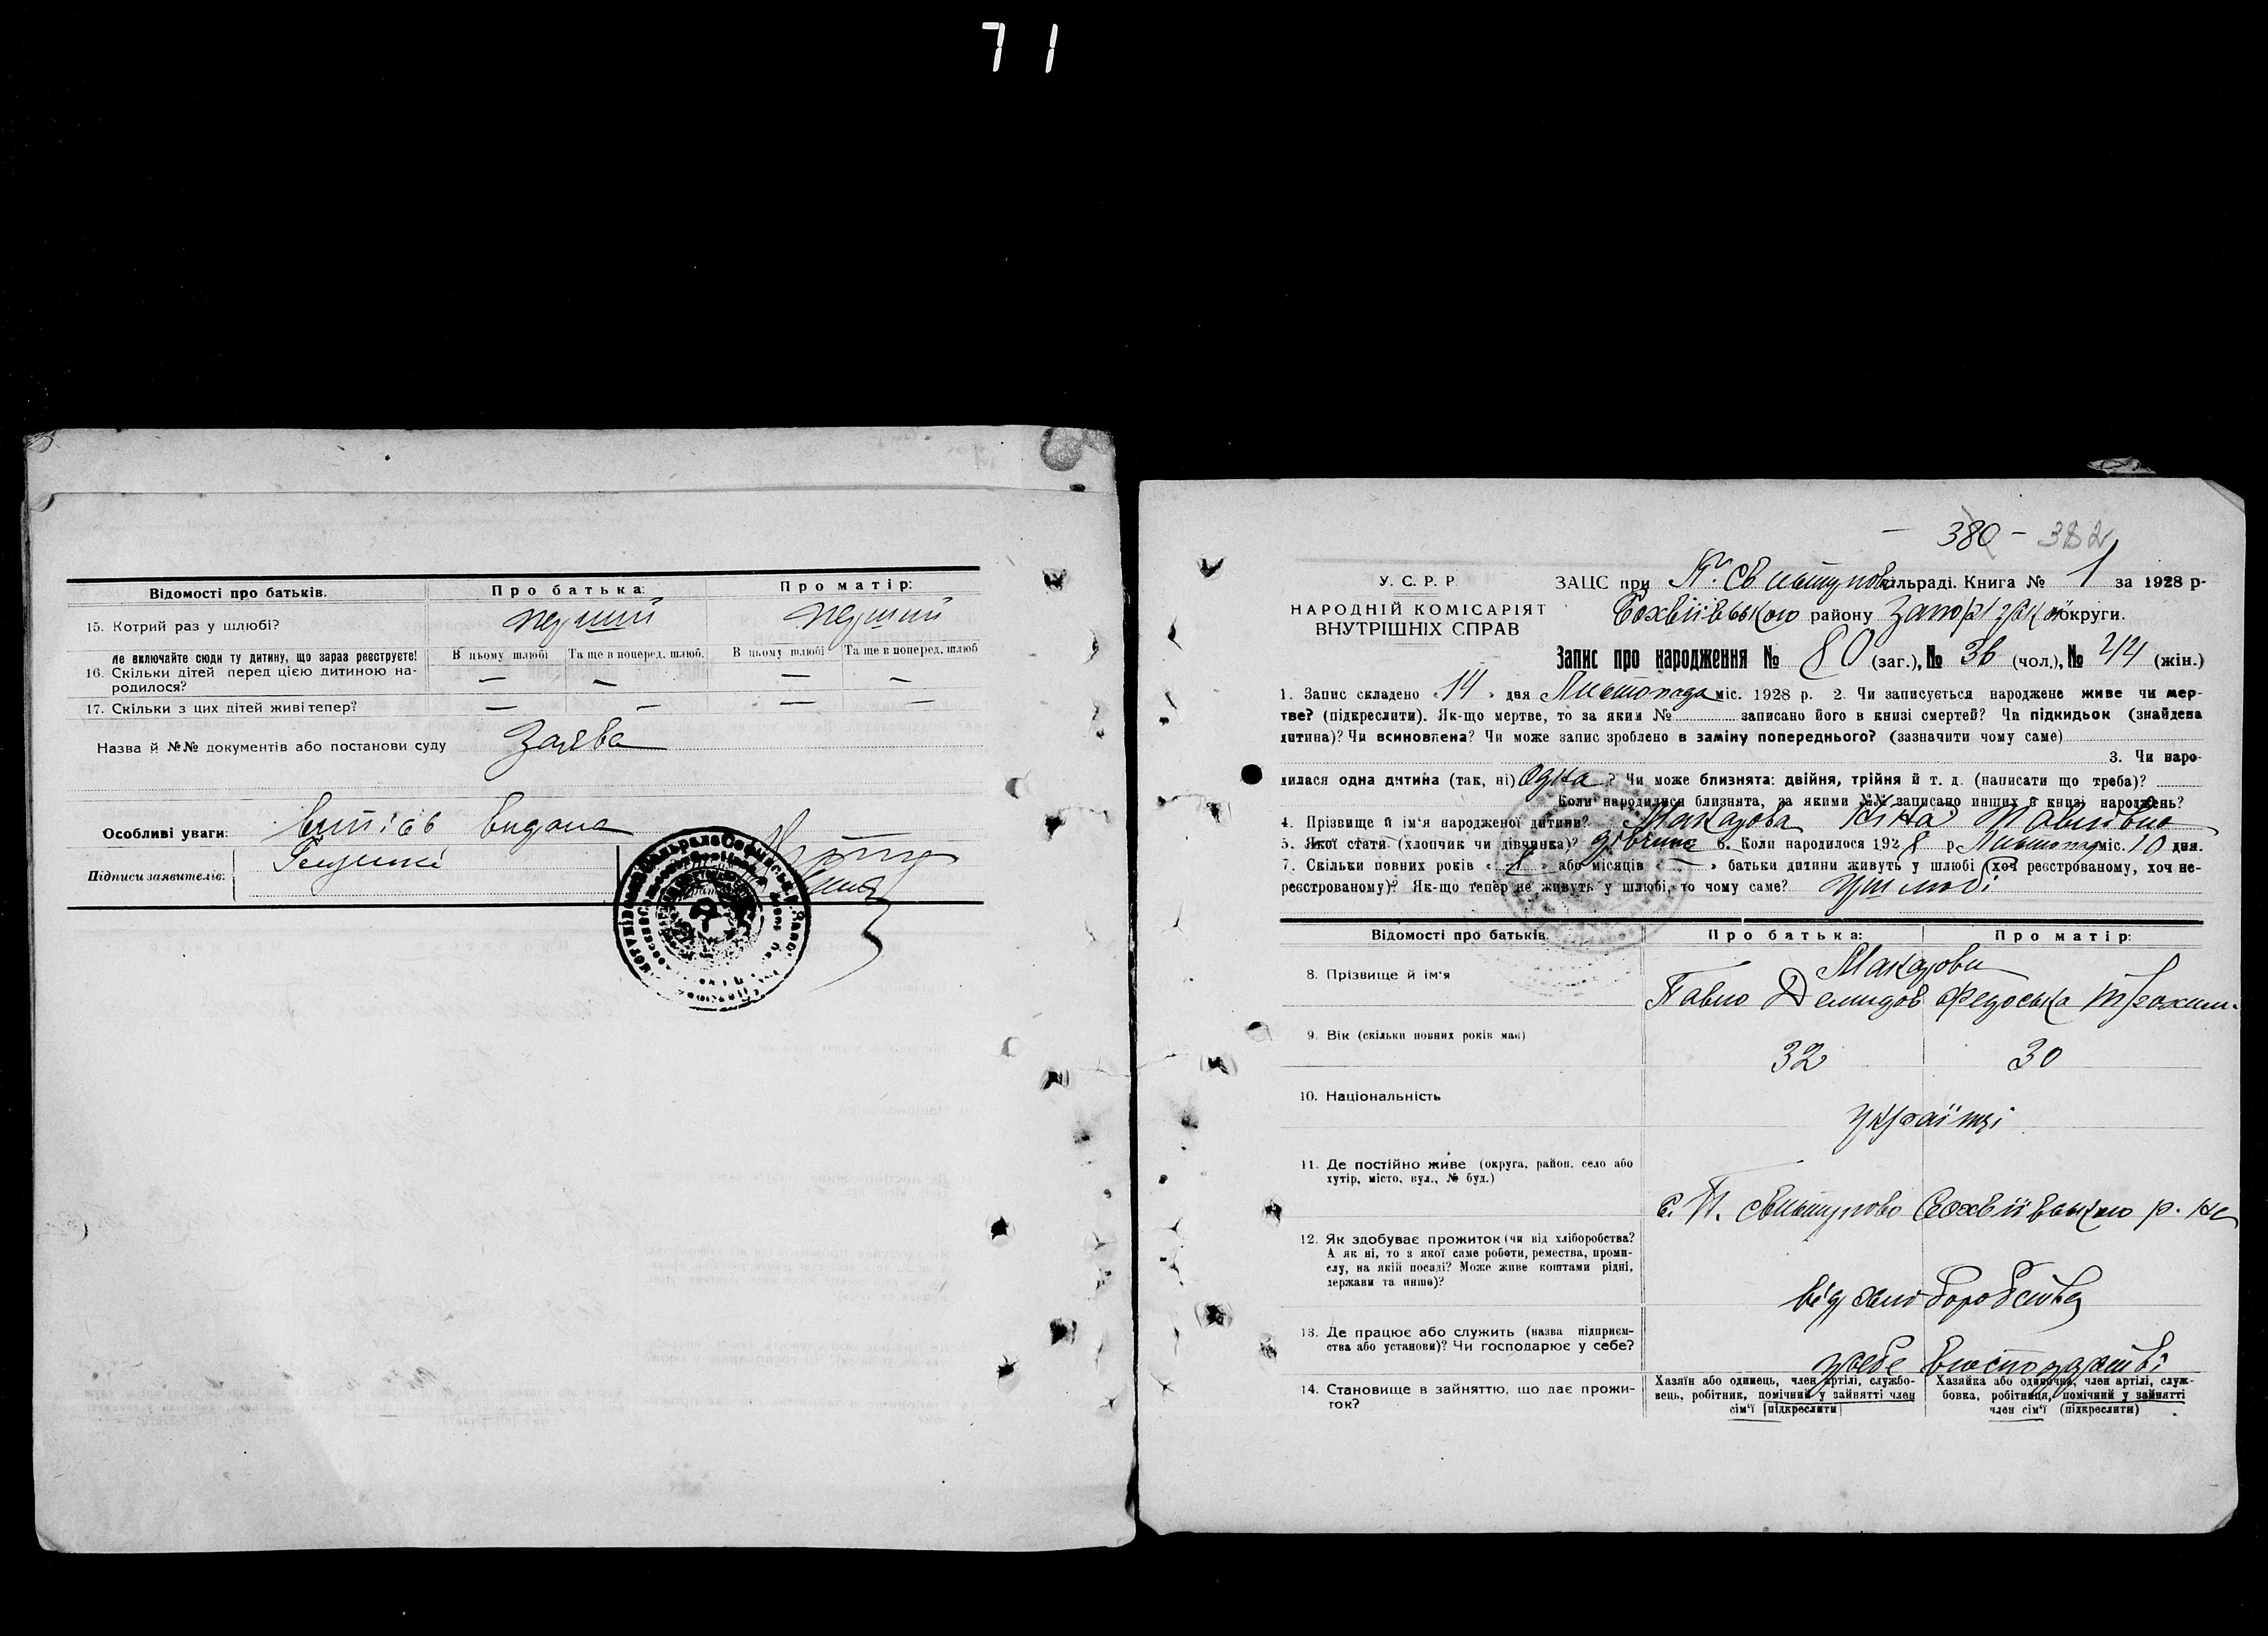 71
Відомості про батьків. Про батька: Про матір:
15. Котрий раз у шлюбі? перший перший
не включайте сюди ту дитину, що зараз реєструєте! В цьому шлюбі Та ще в поперед. шлюб. В цьому шлюбі Та ще в поперед. шлюб
16. Скільки дітей перед цією дитиною на-
родилося? — — — —
17. Скільки з цих дітей живі тепер? — — — —
Назва й №№ документів або постанови суду Заява
Особливі уваги: видана
Підписи заявителів:
— 380 — 382
У. С. Р. Р.
НАРОДНІЙ КОМІСАРІЯТ
ВНУТРІШНІХ СПРАВ
ЗАЦС при сільраді. Книга № 1 за 1928 р-
району округи.
Запис про народження № 80 (заг.), № 36 (чол.), № 44 (жін.)
1. Запис складено «14» дня Листопада міс. 1928 р. 2. Чи записується народжене живе чи мер-
тве? (підкреслити). Як-що мертве, то за яким № записано його в книзі смертей? Чи підкидьок (знайдена
дитина)? Чи всиновлена? Чи може запис зроблено в заміну попереднього? (зазначити чому саме)
3. Чи наро-
дилася одна дитина (так, ні) Одна ? Чи може близнята: двійня, трійня й т. д. (написати що треба)?
Коли народилися близнята, за якими №№ записано инших в книзі народжень?
4. Прізвище й ім'я народженої дитини? Макарова Павлівна
5. Якої стати (хлопчик чи дівчинка)? дівчина 6. Коли народилося 1928 р. Листопад міс. 10 дня.
7. Скільки повних років « » або місяців « — » батьки дитини живуть у шлюбі (хоч реєстрованому, хоч не-
реєстрованому)? Як-що тепер не живуть у шлюбі, то чому саме? у шлюбі
Відомості про батьків. Про батька: Про матір:
8. Прізвище й ім'я Макарови
Павло Демидов Федоська Трохим.
9. Вік (скільки повних років має) 32 30
10. Національність українці
11. Де постійно живе (округа, район, село або
хутір, місто, вул., № буд.)
12. Як здобуває прожиток (чи від хліборобства?
А як ні, то з якої саме роботи, ремества, проми-
слу, на якій посаді? Може живе коштами рідні,
держави та инше)? від хліборобства
13. Де працює або служить (назва підприєм-
ства або установи)? Чи господарює у себе? у себе
14. Становище в зайняттю, що дає прожи-
ток?
Хазяїн або одинець, член артілі, службо-
вець, робітник, помічний у зайнятті член
сім'ї (підкреслити)
Хазяйка або одиночка, член артілі, служ-
бовка, робітниця, помічний у зайнятті
член сім'ї (підкреслити)